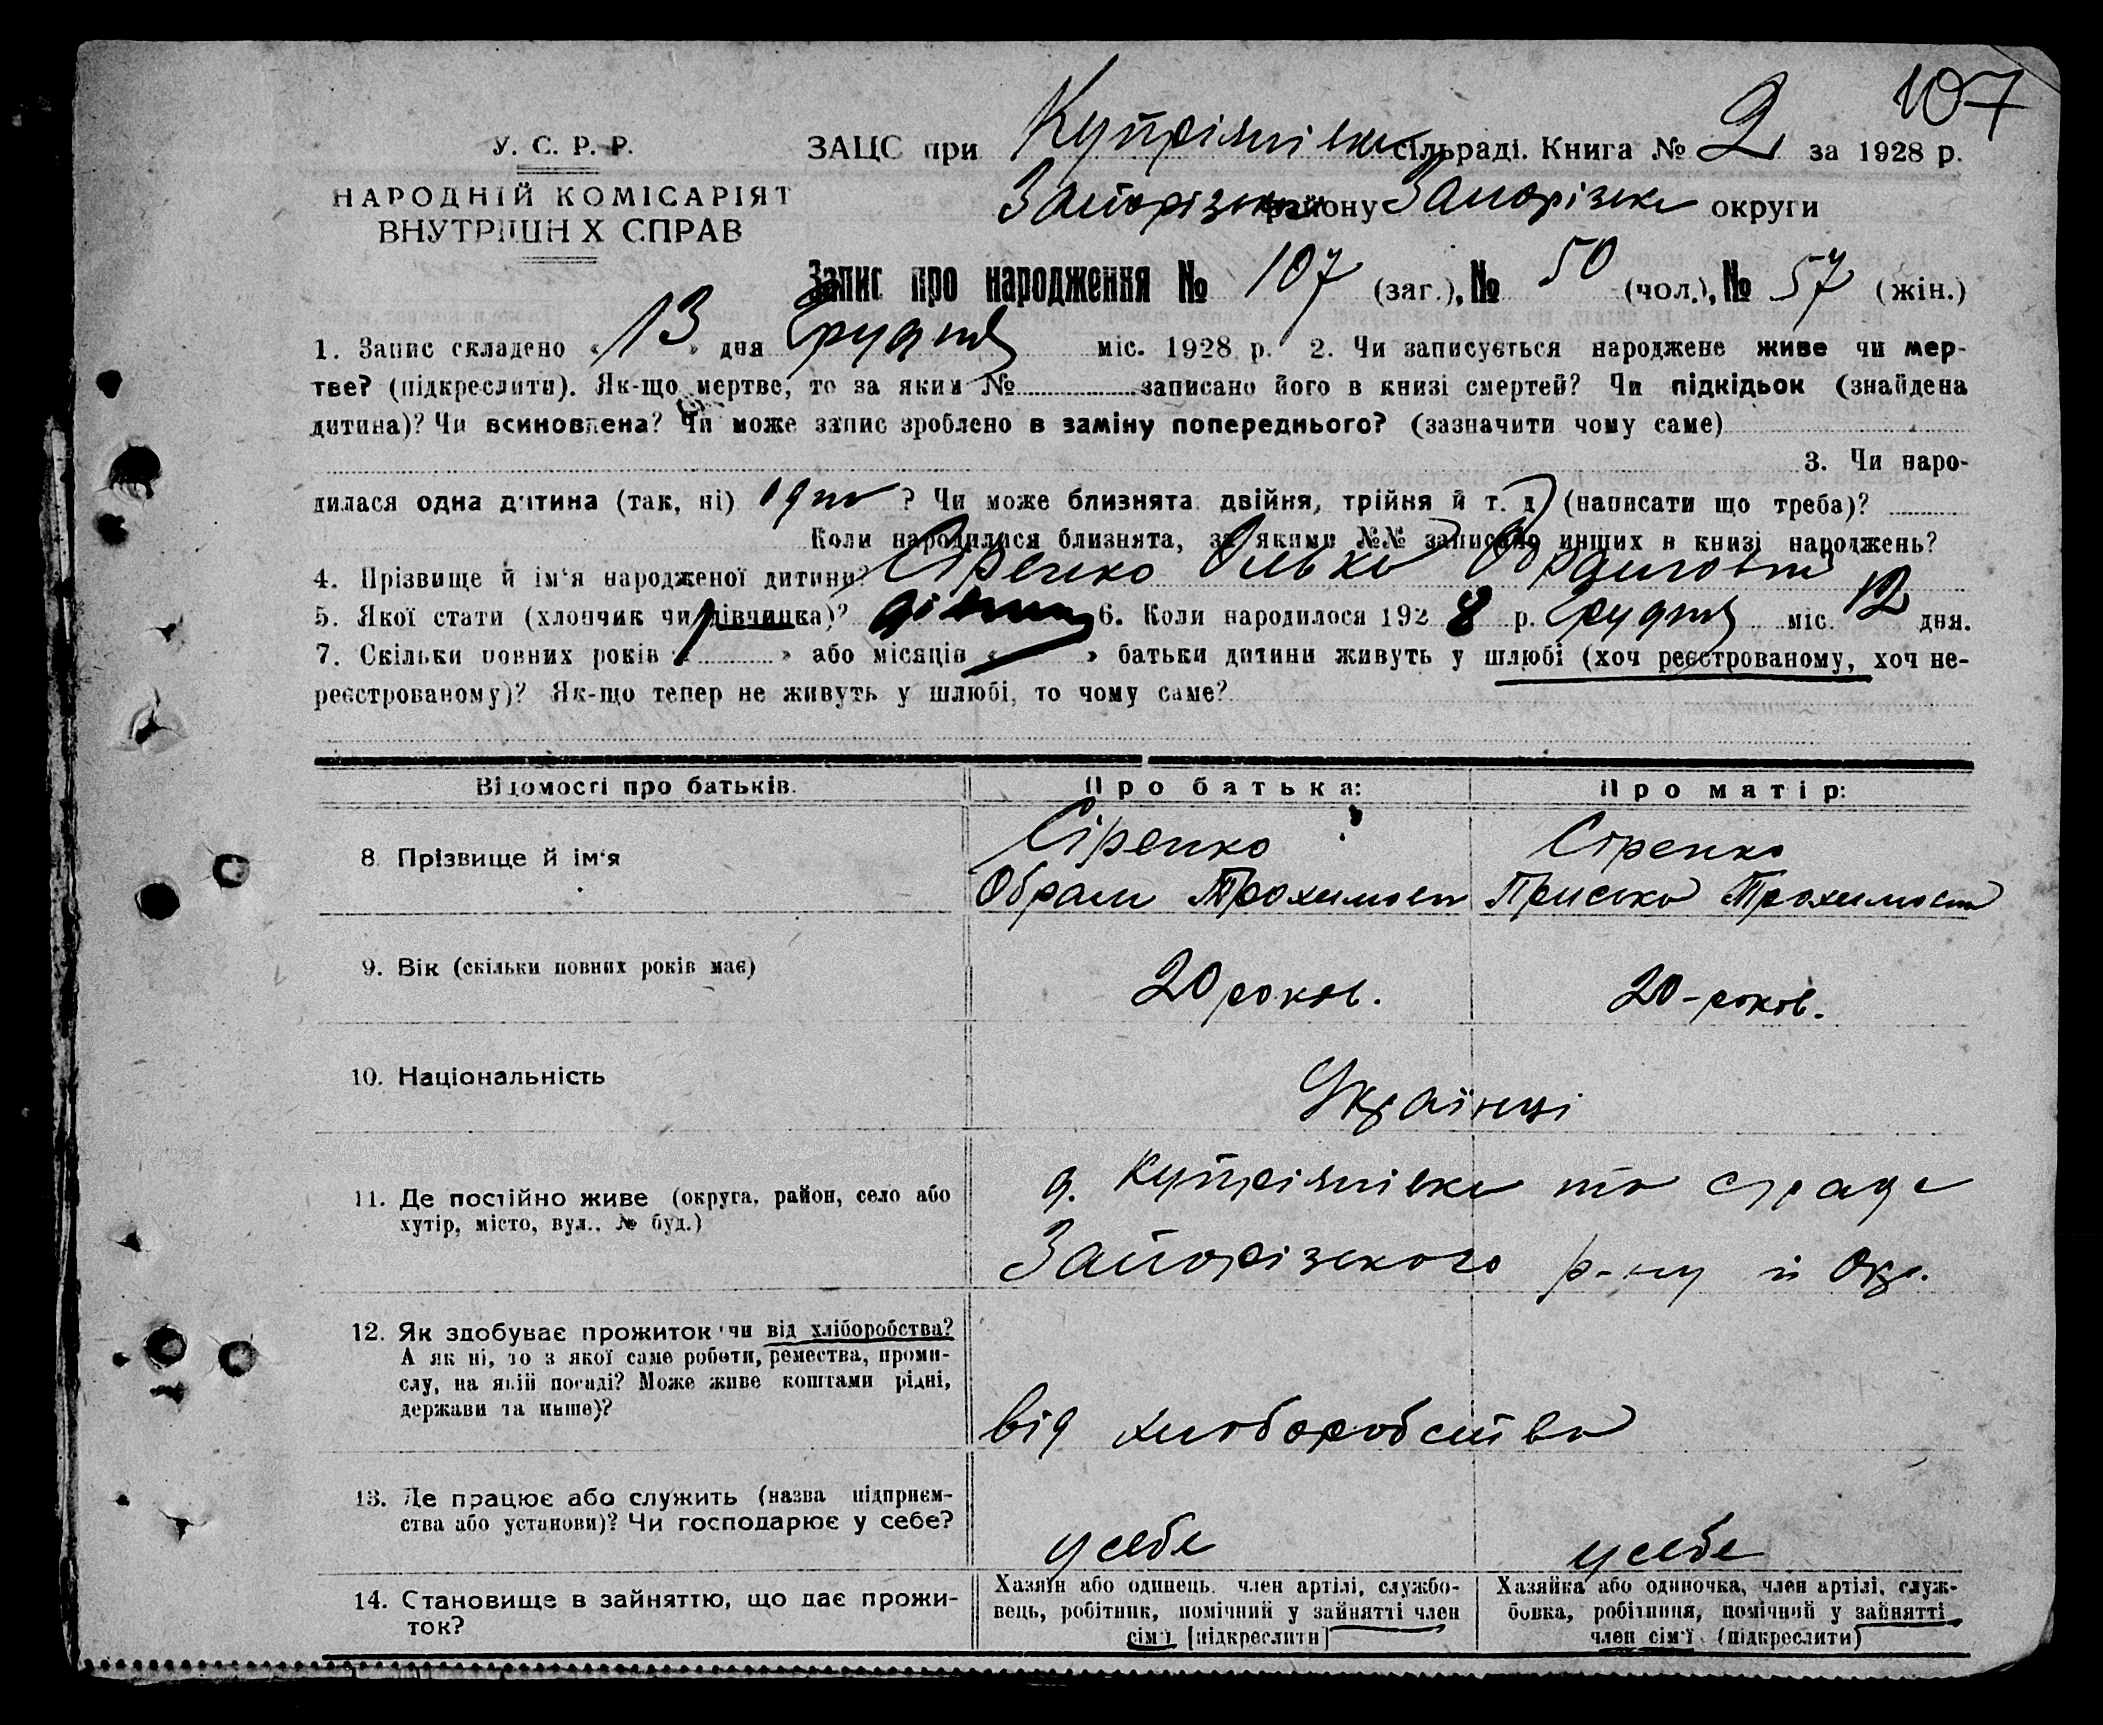 107
У. С. Р. Р.
НАРОДНІЙ КОМІСАРІЯТ
ВНУТРІШНІХ СПРАВ
ЗАЦС при Купріянівке сільраді. Книга № 2 за 1928 р.
Запорізьком району Запорізьке округи
Запис про народження № 107 (заг.), № 50 (чол.), № 57 (жін.)
1. Запис складено «13» дня Грудня міс. 1928 р. 2. Чи записується народжене живе чи мер-
тве? (підкреслити). Як-що мертве, то за яким № записано його в книзі смертей? Чи підкідьок (знайдена
дитина)? Чи всиновлена? Чи може запис зроблено в заміну попереднього? (зазначити чому саме)
3. Чи наро-
дилася одна дитина (так, ні) одна ? Чи може близнята двійня, трійня й т. д. (написати що треба)?
Коли народилися близнята, за якими №№ записано инших в книзі народжень?
4. Прізвище й ім'я народженої дитини? Сіренко Олька
5. Якої стати (хлопчик чи дівчинка)? 6. Коли народилося 1928 р. Грудня міс. 12 дня.
7. Скільки повних років « » або місяців « » батьки дитини живуть у шлюбі (хоч реєстрованому, хоч не-
реєстрованому)? Як-що тепер не живуть у шлюбі, то чому саме?
Відомості про батьків. Про батька: Про матір:
8. Прізвище й ім'я Сіренко Сіренко
Обрам Трохимов Приська Трохимов
9. Вік (скільки повних років має) 20 роков. 20-роков.
10. Національність Українці
11. Де постійно живе (округа, район, село або
хутір, місто, вул., № буд.)
с. Купріянівка
Запорізького р-ну й Окр.
12. Як здобуває прожиток чи від хліборобства?
А як ні, то з якої саме роботи, ремества, проми-
слу, на якій посаді? Може живе коштами рідні,
держави та инше)?
від хлоборобства
13. Де працює або служить (назва підприєм-
ства або установи)? Чи господарює у себе?
у себе у себе
14. Становище в зайняттю, що дає прожи-
ток?
Хазяїн або одинець, член артілі, службо-
вець, робітник, помічний у зайнятті член
сім'ї [підкреслити]
Хазяйка або одиночка, член артілі, служ-
бовка, робітниця, помічний у зайнятті
член сім'ї (підкреслити)